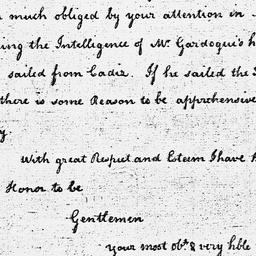 much obliged by your attention in
ing the Intelligence of Mr. Gardoqui's h
sailed from Cadiz. If he sailed the
there is some Reason to be apprehensive
y
With great Respect and Esteem I have
Honor to be
Gentlemen
your most obt. & very hble